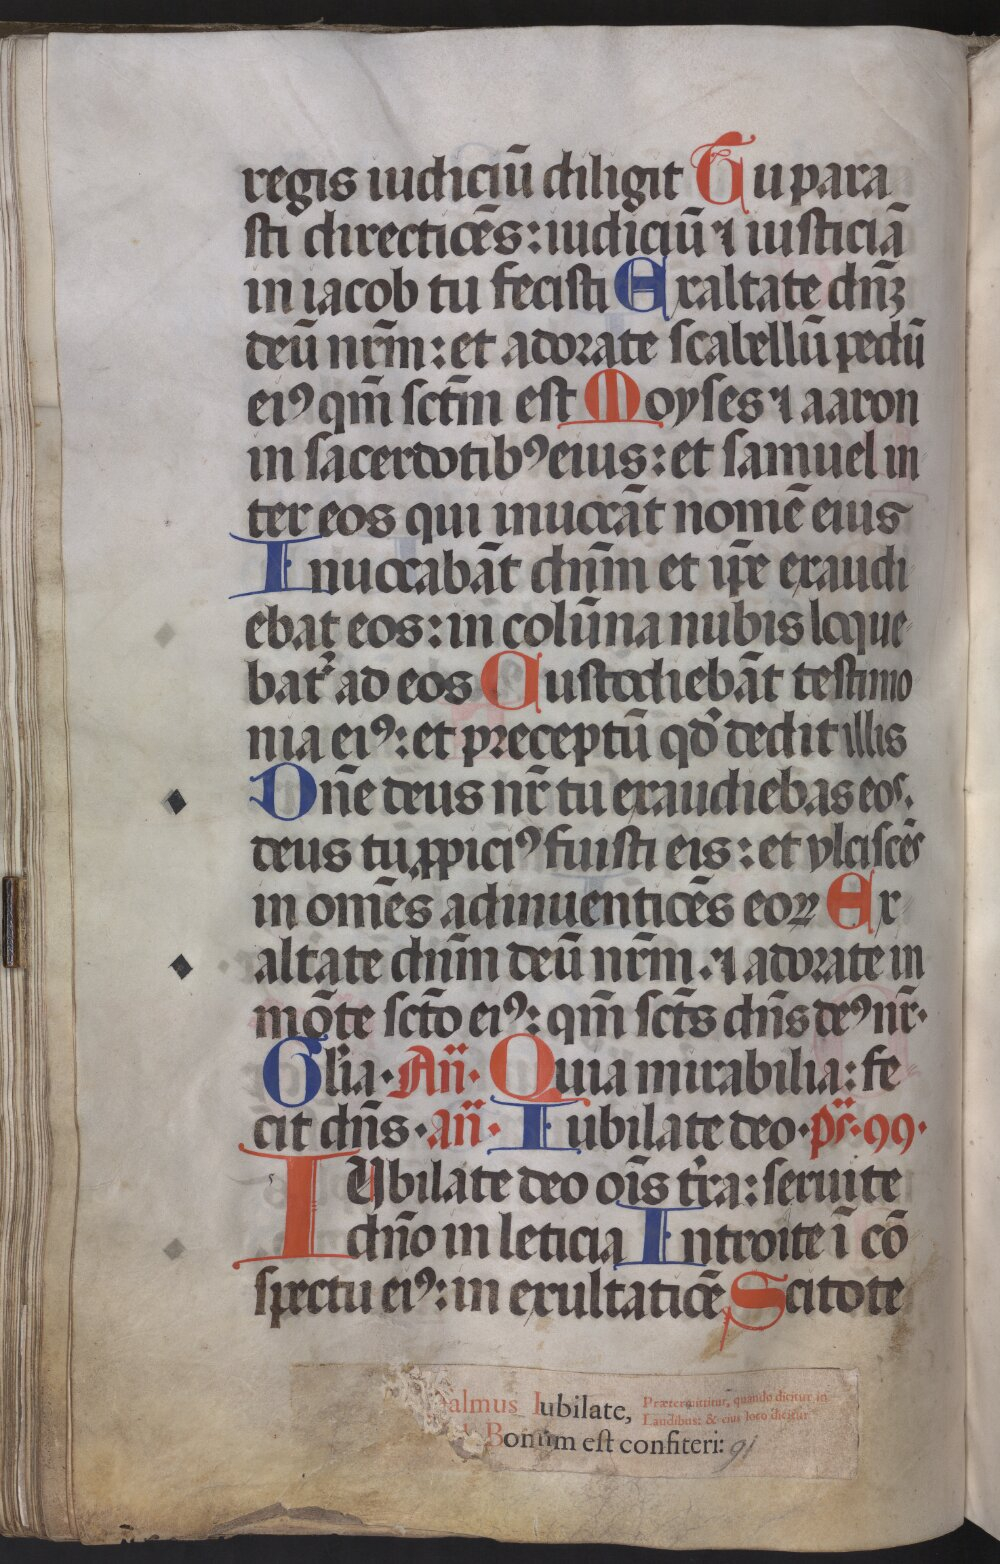 regis iudiciū diligit Tu para
sti directiōēs: iudiciū ⁊ iusticiā
in iacob tu fecisti Exaltate dn̄ꝫ
deū nr̄m: et adorate scabellū pedū
eiꝰ qm̄ sct̄m est Moyses ⁊ aaron
in sacerdotibꝰ eius: et samuel in
ter eos qui inuocāt nomē eius
Inuocabāt dn̄m et ip̄e exaudi
ebat eos: in colūna nubis loque
bat᷑ ad eos Custodiebāt testimo
nia eiꝰ: et preceptū qd̄ dedit illis
Dn̄e deus nr̄ tu exaudiebas eos.
deus tu ꝓpiciꝰ fuisti eis: et ylciscēs
in omēs adinuentiōēs eoꝝ Ex
altate dn̄m deū nr̄m. ⁊ adorate in
mōte sct̄o eiꝰ: qm̄ sct̄s dn̄s deꝰ nr̄.
Gl̄ia. An̄. Quia mirabilia: fe
cit dn̄s. an̄. Iubilate deo. ps. 99.
IUbilate deo oīs t̄ra: seruite
dn̄o in leticia Introite ī cō
spectu eiꝰ: in exultatiōē Scitote
almus Iubilate, Prætermittitur, quando dicitur in
Laudibus: & eius loco dicitur
Bonum est confiteri: 91